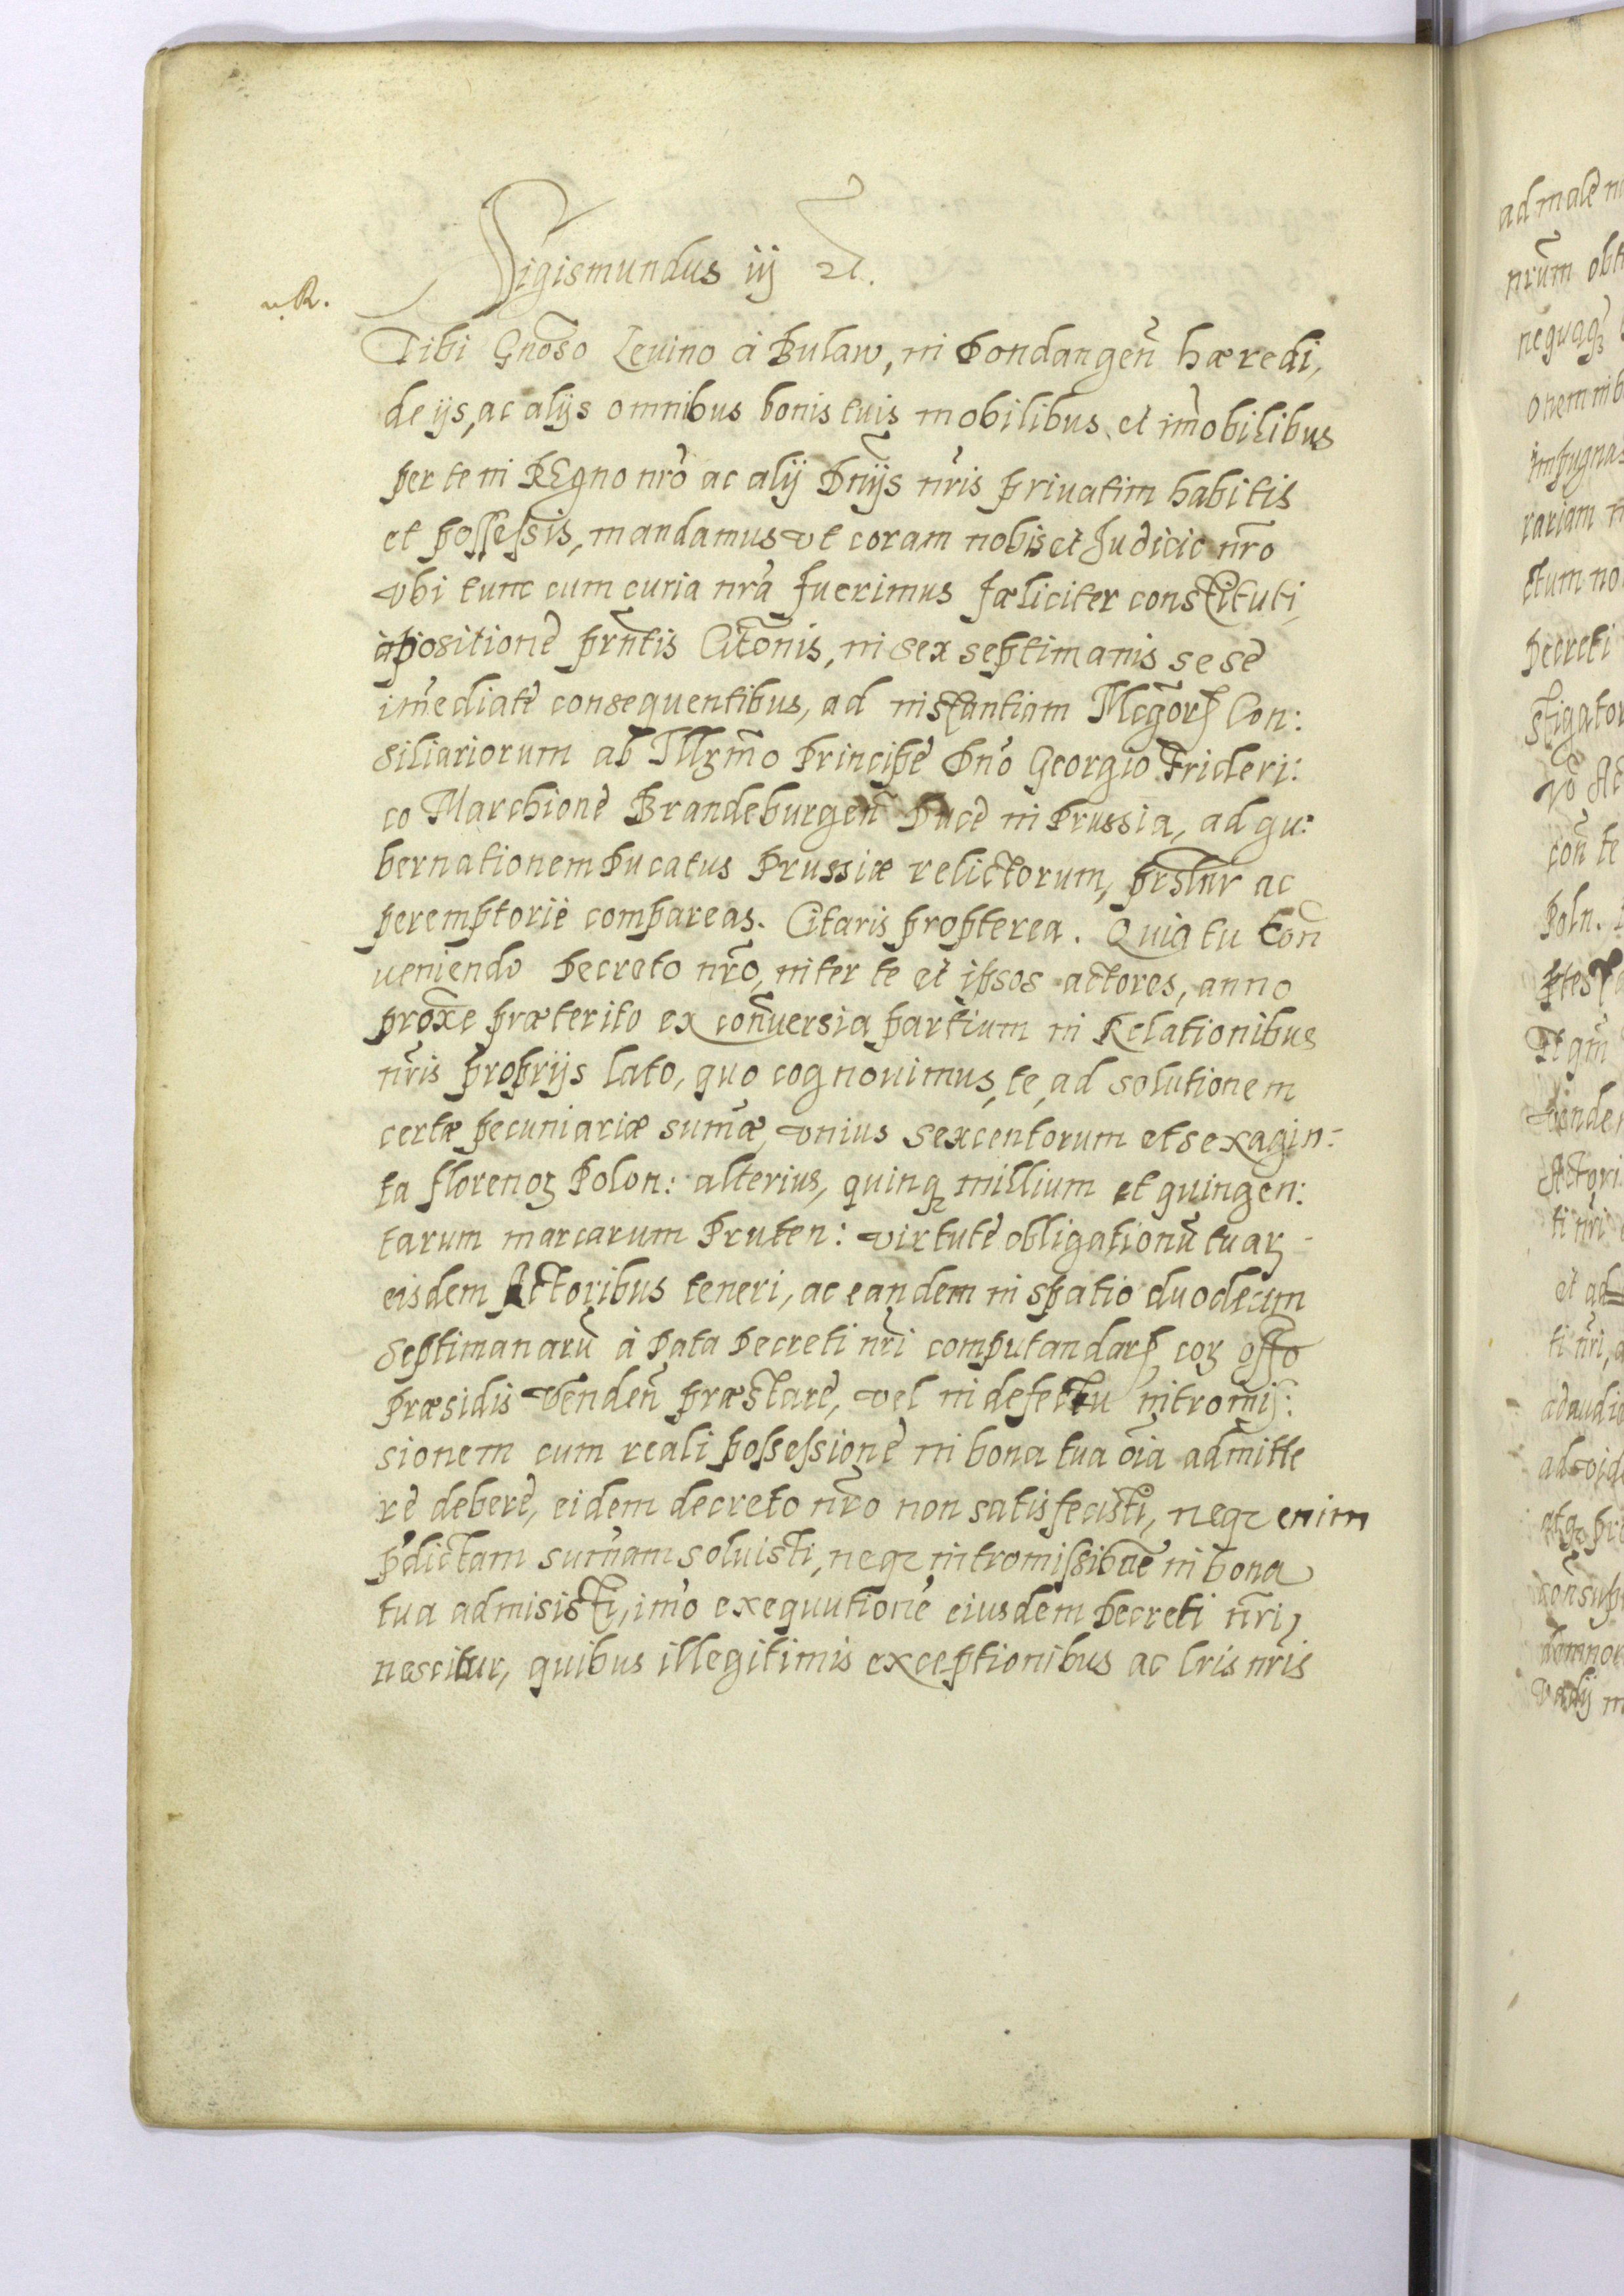 Sigismundus iij ꝛc.
n. R.
Tibi Gnōso Leuino à Bulaw, in Dondangen̄ hæredi,
de ijs, ac alijs omnibus bonis tuis mobilibus et im̄obilibus
per te in REgno nrō ac alij Dnijs nr̄is priuatim habitis
et possessis, mandamus vt coram nobis et Judicio nr̄o
vbi tunc cum curia nrā fuerimus fæliciter constituti,
àpositione prn̄tis Citōnis, in sex septimanis sese
im̄ediatè consequentibus, ad instantiam Mcgōrꝭ Con:
siliariorum ab Illzm̄o Principe Dnō Georgio Frideri:
co Marchione Brandeburgen̄ Duce in Prussia, ad gu:
bernationem Ducatus Prussiæ relictorum, prs̄lnr ac
peremptoriè compareas. Citaris propterea. Quia tu con̄
ueniendo Decreto nr̄o, inter te et ipsos actores, anno
prox̄e præterito ex con̄uersia partium in Relationibus
nr̄is proprijs lato, quo cognouimus, te, ad solutionem
certæ pecuniariæ sum̄æ, vnius sexcentorum et sexagin:
ta florenoꝝ Polon: alterius, quinqꝫ millium et quingen:
tarum marcarum Pruten: virtute obligationū tuaꝝ
eisdem Actoribus teneri, ac eandem in spatio duodecim
septimanarū à Data Decreti nr̄i computandarꝭ, coꝝ offo
Præsidis Venden̄ præstare, vel in defectu intromis:
sionem cum reali possessione in bona tua oīa admitte
re debere, eidem decreto nr̄o non satisfecisti, neqꝫ enim
p̄dictam sum̄am soluisti, neqꝫ intromissionē in bona
tua admisisti, imò exequutione eiusdem Decreti nr̄i,
nescitur, quibus illegitimis exceptionibus ac lris nr̄is